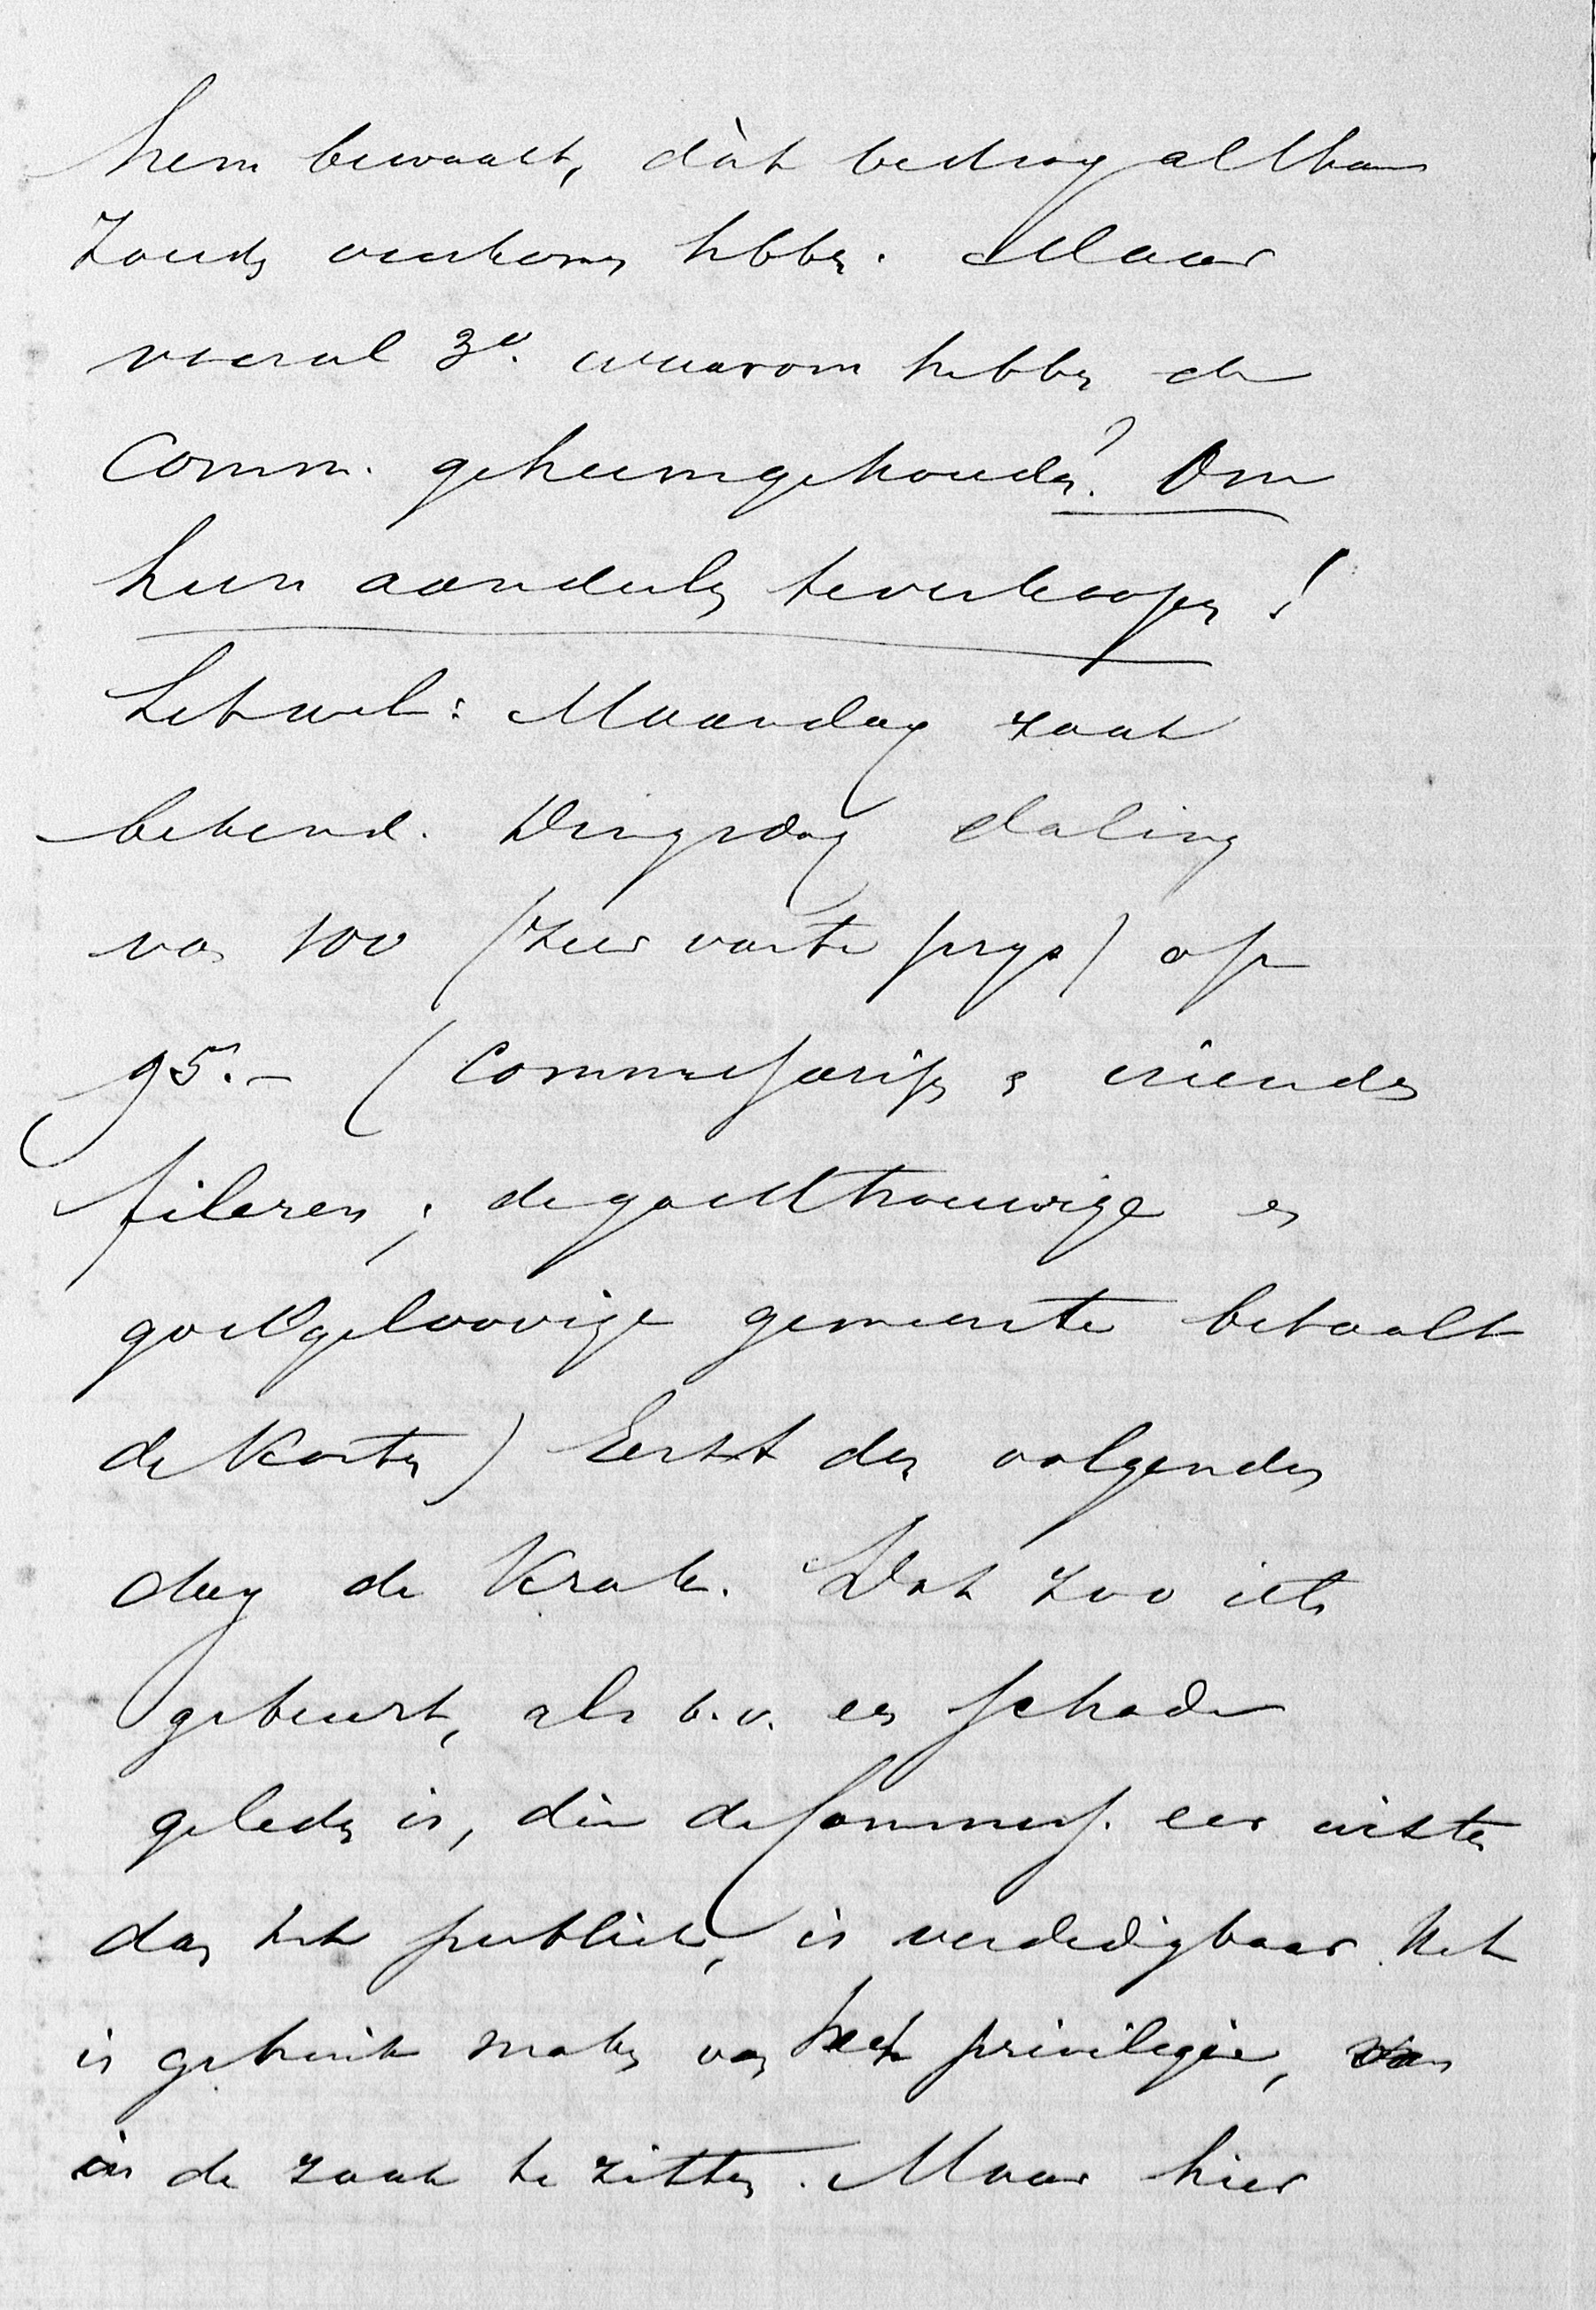 hem bewaakt, dàt bedrog althans
zouden voorkomen hebben. Maar
vooral 3o. waarom hebben de
Comm. geheimgehouden? Om
hun aandeelen te verkoopen!
Let wel: Maandag zaak
bekend. Dingsdag daling
van 100 (zeer vaste prijs) op
95.- (Commissarissen & vrienden
fileren; de goedtrouwige en
goedgeloovige gemeente betaalt
de Kosten) Eerst den volgenden
dag de Krak. Dat zoo iets
gebeurt, als b.v. een schade
geleden is, die de Commiss. eer wisten
dan het publiek, is verdedigbaar. Het
is gebruik maken van het privilegie, van
in de zaak te zitten. Maar hier